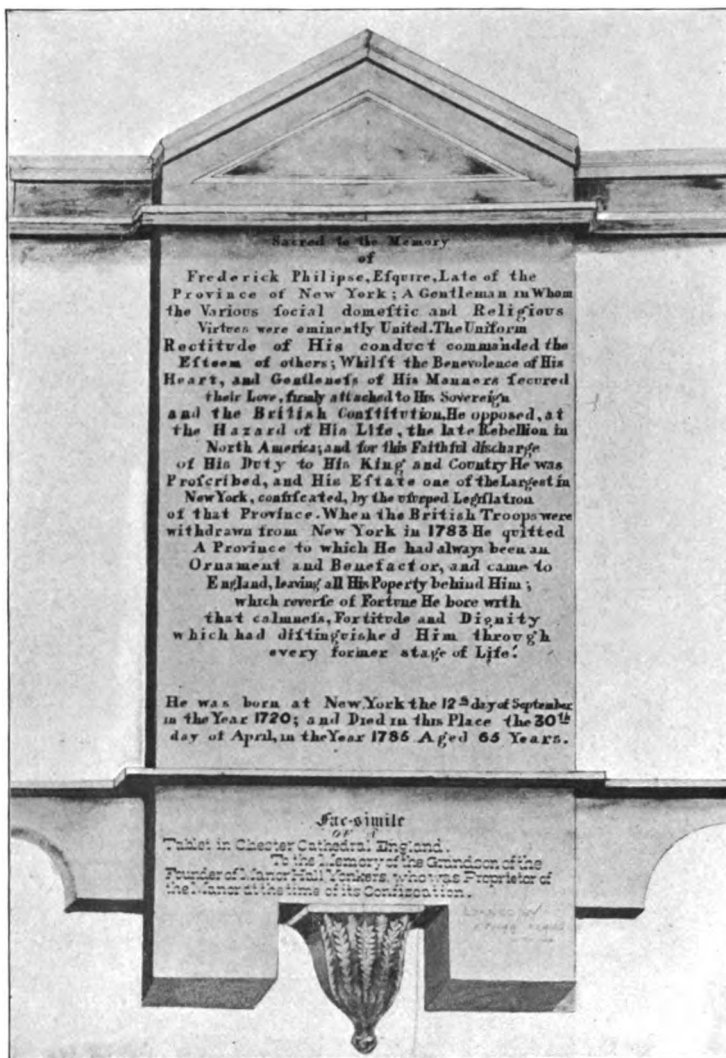 Sacred to the Memory
of
Frederick Philipse, Eſquire, Late of the
Province of New York; A Gentleman in Whom
the Various ſocial domeſtic and Religious
Virtues were eminently United. The Uniform
Rectitude of His conduct commanded the
Eſteem of others; Whilſt the Benevolence of His
Heart, and Gentleneſs of His Manners ſecured
their Love, firmly attached to His Sovereign
and the Britiſh Conſtitution, He opposed, at
the Hazard of His Life, the late Rebellion in
North America; and for this Faithful discharge
of His Duty to His King and Country He was
Proſcribed, and His Eſtate one of the Largest in
New York, confiſcated, by the uſurped Legiſlation
of that Province. When the British Troops were
withdrawn from New York in 1783 He quitted
A Province to which He had always been an
Ornament and Benefactor, and came to
England, leaving all His Poperty behind Him;
which reverſe of Fortune He bore with
that calmneſs, Fortitude and Dignity
which had diſtinguiſhed Him through
every former stage of Life.
He was born at New York the 12th day of September
in the Year 1720; and Died in this Place the 30th
day of April, in the Year 1785 Aged 65 Years.
Fac-simile
OF A
Tablet in Chester Cathedral England.
To the Memory of the Grandson of the
Founder of Manor Hall Yonkers, who was Proprietor of
the Manor at the time of its Confiscation.